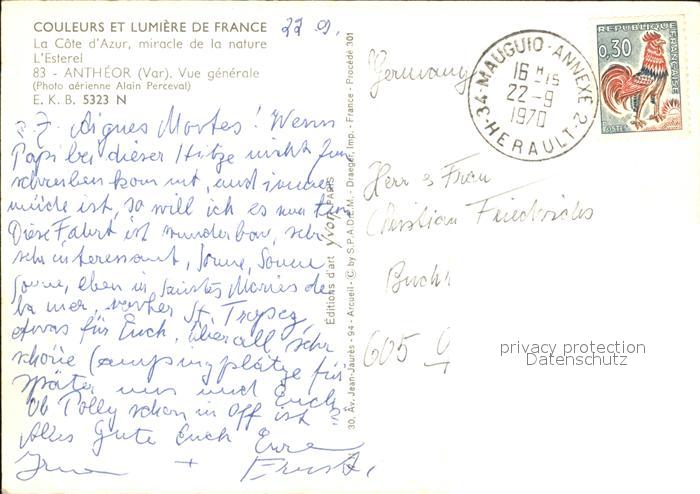 COULEURS ET LUMIÈRE DE FRANCE
La Côte d'Azur, miracle de la nature
L'Esterel
83 - ANTHÉOR (Var). Vue générale
(Photo aérienne Alain Perceval)
E. K. B. 5323 N
22 9.
z. Z. Aigues Mortes! Wenn
Papi bei dieser Hitze nicht zum
schreiben kommt, und immer
müde ist, so will ich es nun tun
Diese Fahrt ist wunderbar, sehr
sehr interessant, Sonne, Sonne
Sonne, eben in Saintes Maries de
la mer, vorher St. Tropez,
etwas für Euch. Überall sehr
schöne Campingplätze für
später uns und Euch
Ob Polly schon in off ist
Alles Gute Euch Eure
Irma + Ernst.
Editions d'art yvon, PARIS
30, Av. Jean-Jaurès - 94 - Arcueil - © by S.P.A.D.E.M. - Draeger, Imp. - France - Procédé 301
Germany
34-MAUGUIO-ANNEXE 2
16 H 15
22-9
1970
HERAULT
REPUBLIQUE FRANÇAISE
0,30
POSTES
Herr & Frau
Christian Friedrichs
605
privacy protection
Datenschutz